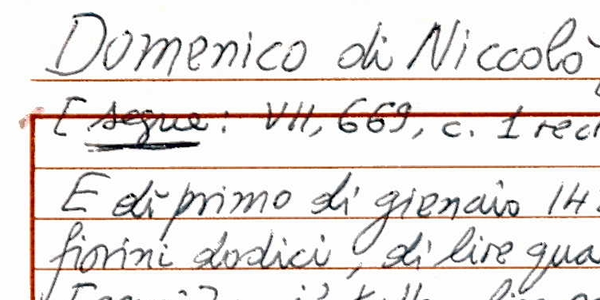 Domenico di Niccolò
[segue: VII, 669, c. 1
E di primo di gienaio
fiorini dodici, di lire